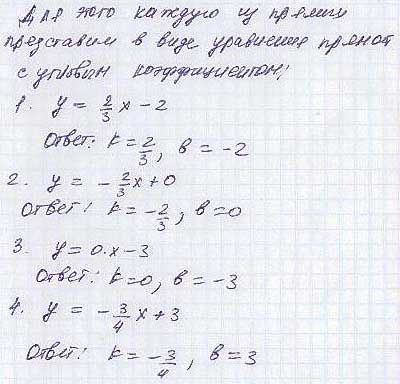 Для этого каждую из прямых
представим в виде уравнения прямой
с угловым коэффициентом:
1. y = 2/3 x - 2
Ответ: k = 2/3, в = -2
2. y = - 2/3 x + 0
Ответ: k = - 2/3, в = 0
3. y = 0.x - 3
Ответ: k = 0, в = -3
4. y = - 3/4 x + 3
Ответ: k = - 3/4, в = 3